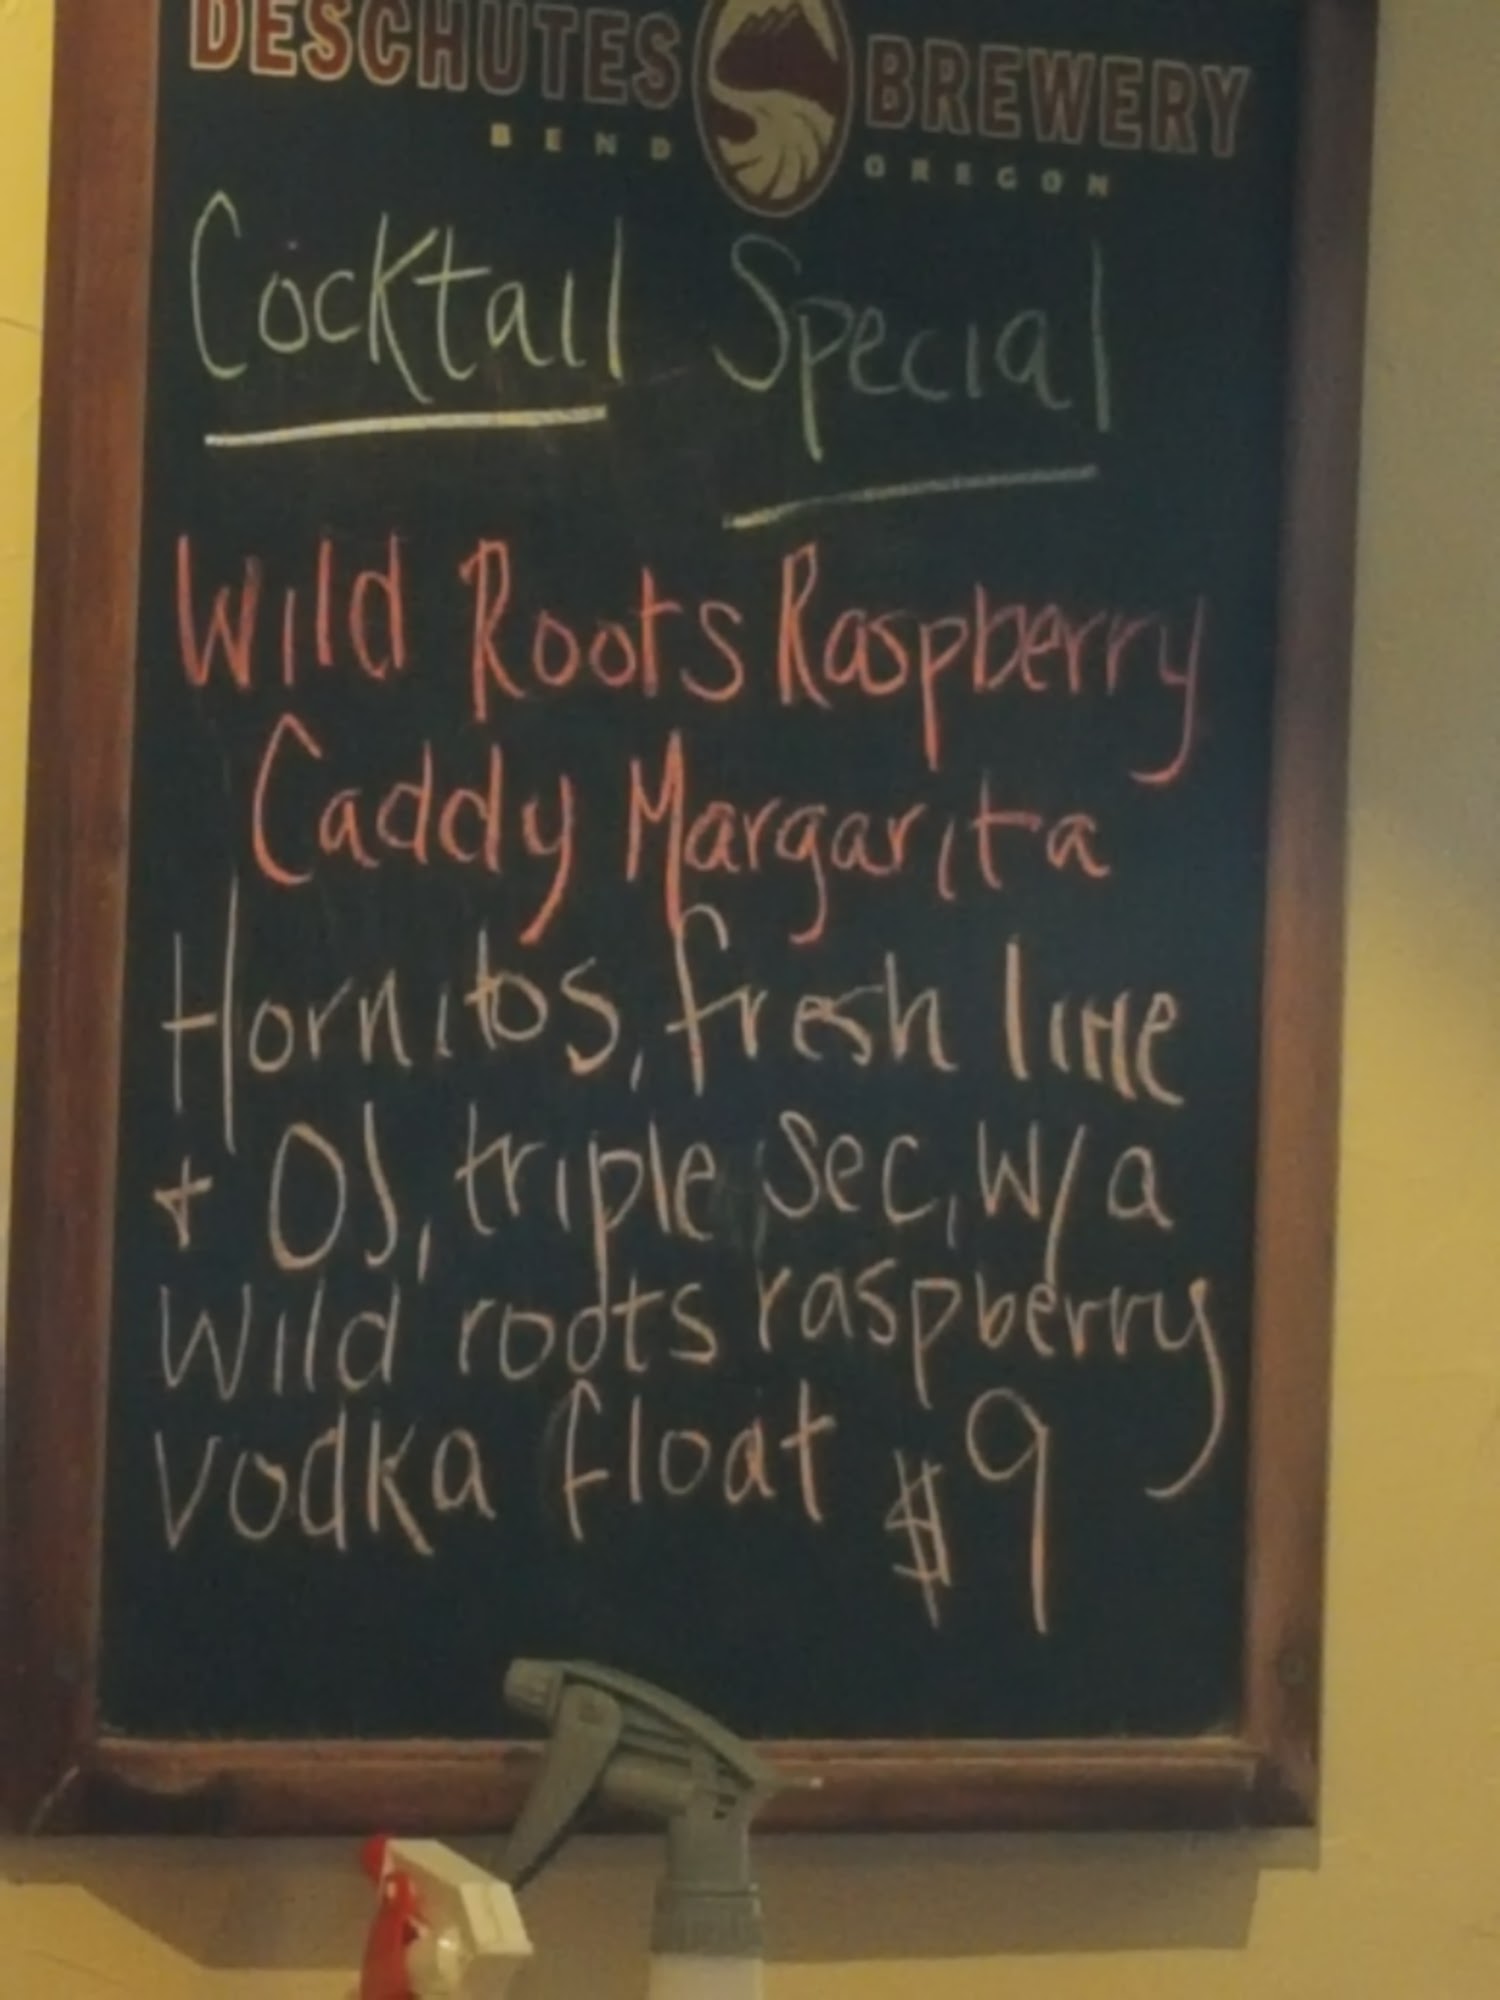 DESCHUTES BREWERY
BEND OREGON
Cocktail Special
Wild Roots Raspberry
Caddy Margarita
Hornitos, fresh lime
+ OJ, triple sec, w/ a
Wild roots raspberry
vodka float $9